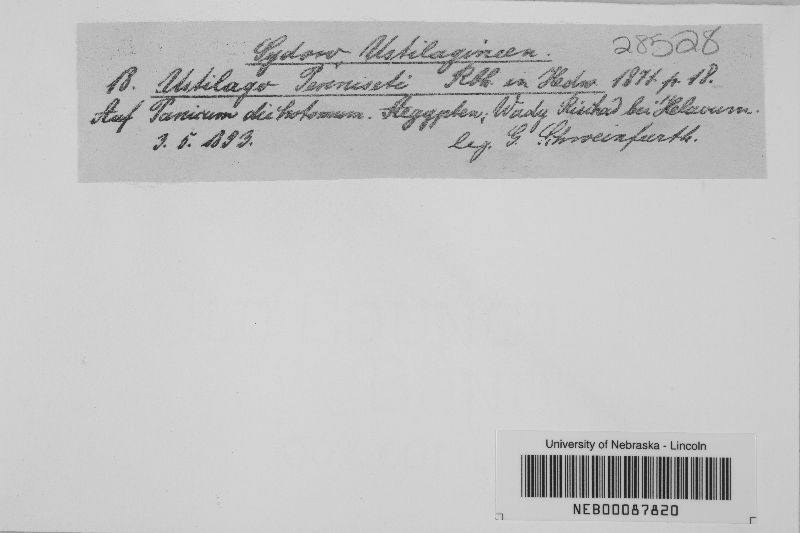 28528
Sydow, Ustilagineen.
13. Ustilago Penniseti Rbh. in Hedw. 1871. p. 18.
Auf Panicum dichotomum. Aegypten; Wady Rischad bei Helavum.
3. 5. 1893. leg. G. Schweinfurth.
University of Nebraska - Lincoln
NEB00087820